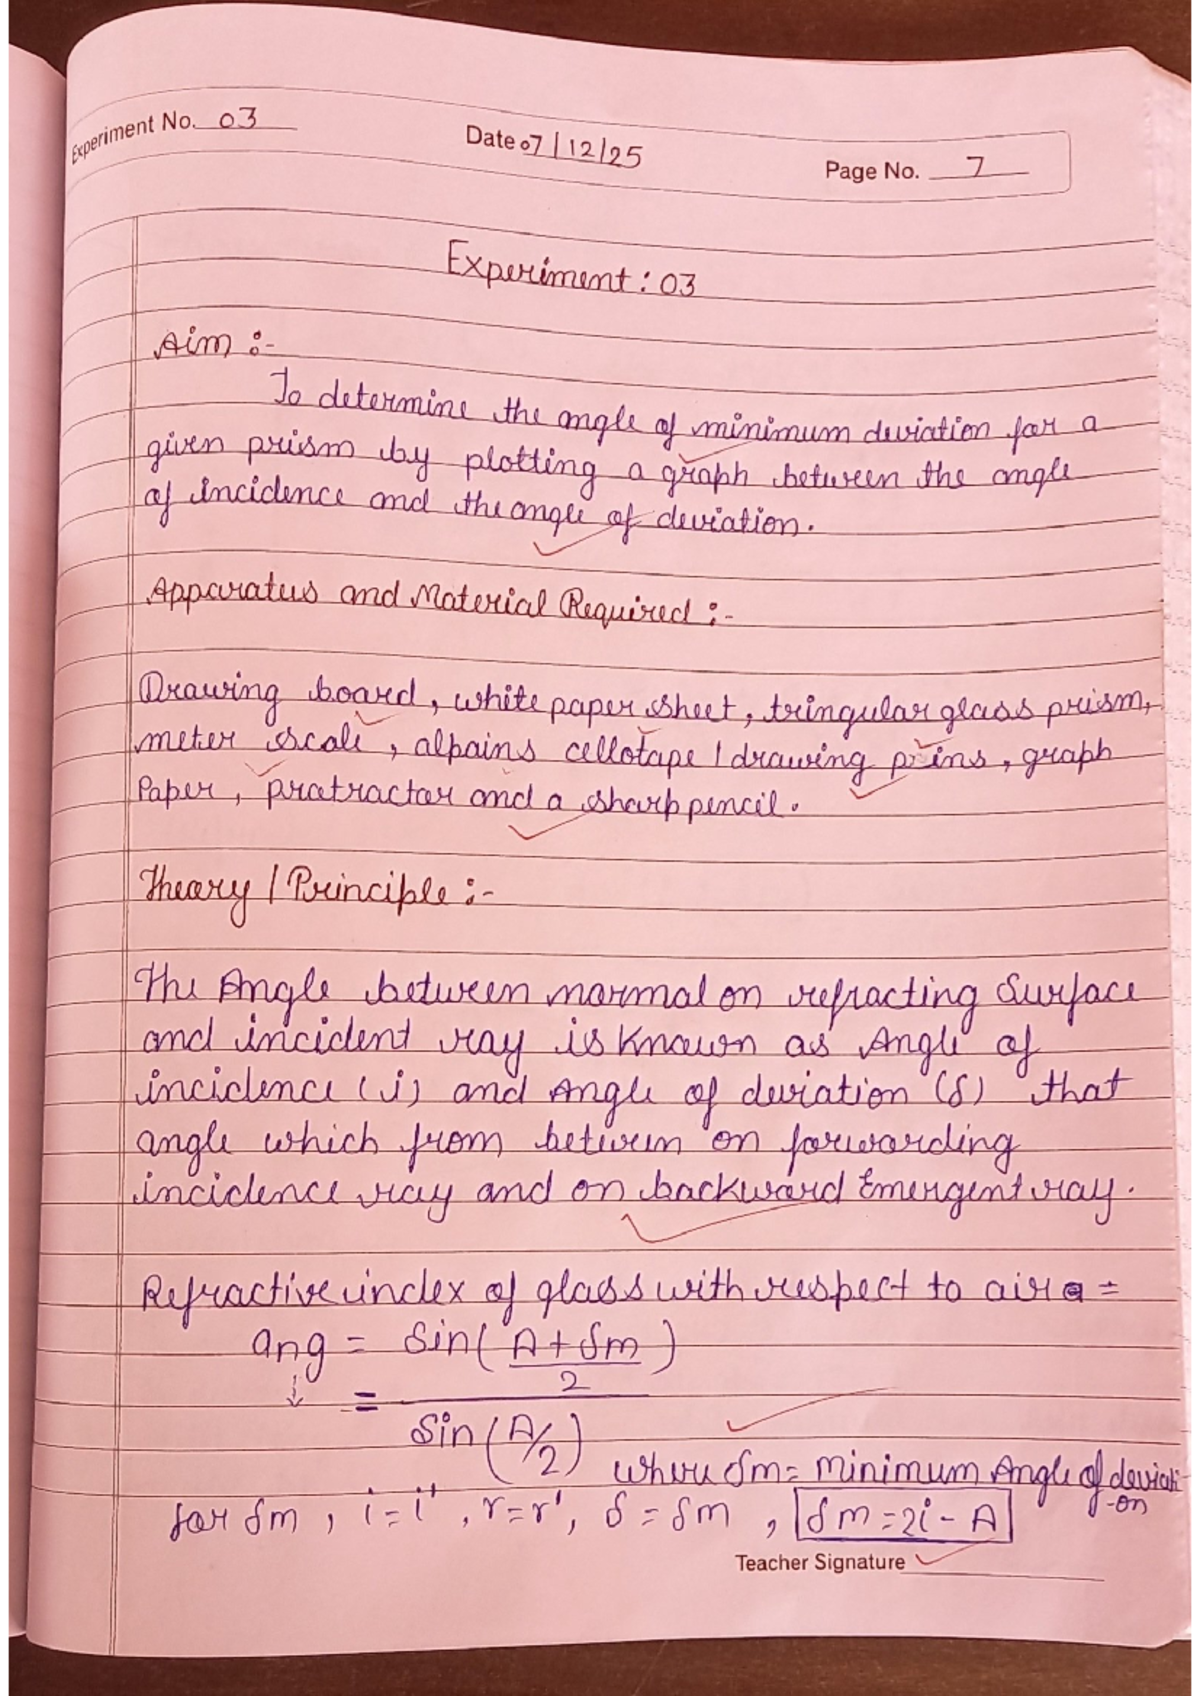 Experiment No. 03
Date 07/12/25
Page No. 7
Experiment : 03
Aim :-
To determine the angle of minimum deviation for a
given prism by plotting a graph between the angle
of incidence and the angle of deviation.
Apparatus and Material Required :-
Drawing board, white paper sheet, tringular glass prism,
meter scale, alpains cellotape / drawing pins, graph
Paper, pratractor and a sharp pencil.
Theory / Principle :-
The Angle between normal on refracting Surface
and incident ray is Known as Angle of
incidence (i) and Angle of deviation (δ) that
angle which from between on forwarding
incidence ray and on backward Emergent ray.
Refractive index of glass with respect to air a =
ang = Sin(A+δm/2)
↓ =
Sin(A/2) where δm = minimum Angle of deviati-on
for δm, i=i', r=r', δ=δm, δm=2i-A
Teacher Signature